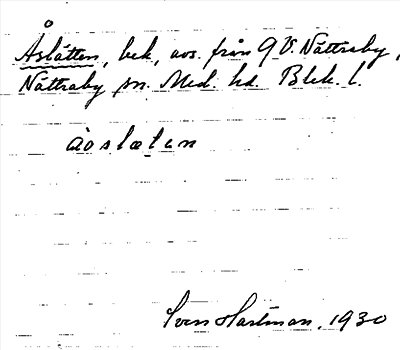 Å
Åslätten, bek, avs. från 9 V. Nättraby,
Nättraby sn. Med. hd. Blek. l.
àoslætən
Sven Hartman, 1930